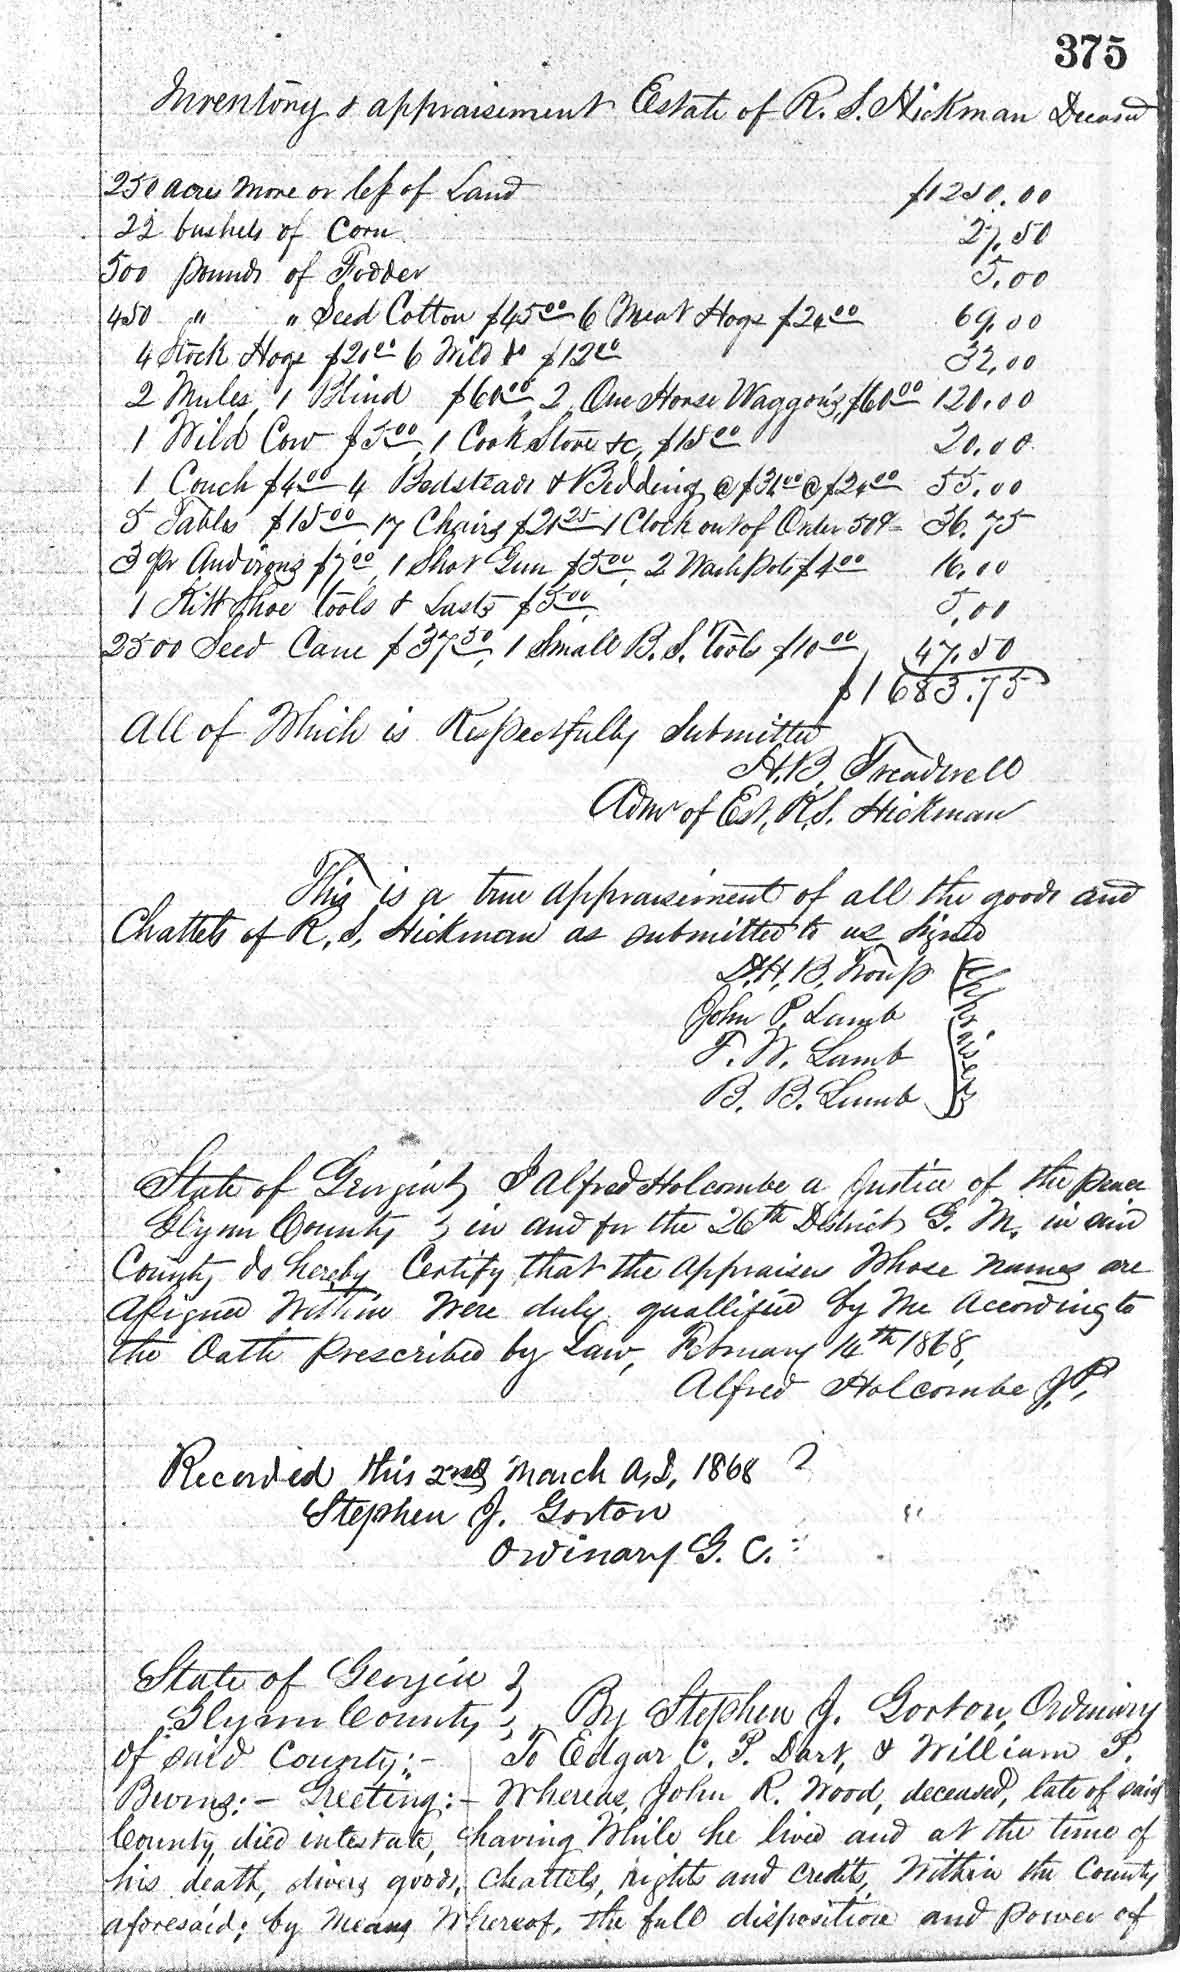 375
Inventory & appraisement Estate of R. S. Hickman Deceased
250 acres more or less of Land $1250.00
22 bushels of Corn 27.50
500 pounds of Fodder 5.00
450 " " Seed Cotton $45.00 6 Meat Hogs $24.00 69.00
4 Stock Hogs $20.00 6 Wild do $12.00 32.00
2 Mules, 1 Blind $60.00, 2, One Horse Waggons, $60.00 120.00
1 Wild Cow $5.00, 1 Cook Stove &c, $15.00 20.00
1 Couch $4.00 4 Bedsteads & Bedding @ $31.00 @ $20.00 55.00
5 Tables $15.00, 17 Chairs $21.25 1 Clock out of Order 50¢ 36.75
3 pr Andirons $7.00, 1 Shot Gun $5.00, 2 Wash Pots $4.00 16.00
1 Kitt Shoe tools & Lasts $5.00, 5.00
2500 Seed Cane $37.50, 1 Small B. S. Tools $10.00 47.50
$1683.75
All of Which is Respectfully Submitted
H. B. Treadwell
Admr of Est, R. S. Hickman
This is a true appraisement of all the goods and
Chattels of R. S. Hickman as submitted to us signed
D. H. B. Troup
John P. Lamb
F. W. Lamb
B. B. Lamb
Appraisers
State of Georgia } I Alfred Holcombe a Justice of the peace
Glynn County } in and for the 26th District G. M. in said
County do hereby Certify that the appraisers Whose names are
assigned Within Were duly quallified by me According to
the Oath prescribed by Law, February 14th 1868,
Alfred Holcombe J. P.
Recorded this 2nd March A, D, 1868
Stephen J. Gorton
Ordinary G. C.
State of Georgia }
Glynn County } By Stephen J. Gorton, Ordinary
of said County:- To Edgar C. P. Dart, & William P.
Burns:- Greeting:- Whereas, John R. Wood, deceased, late of said
County, died intestate, having While he lived and at the time of
his death, divers goods, chattels, rights and credits, Within the County
aforesaid; by means Whereof, the full disposition and power of